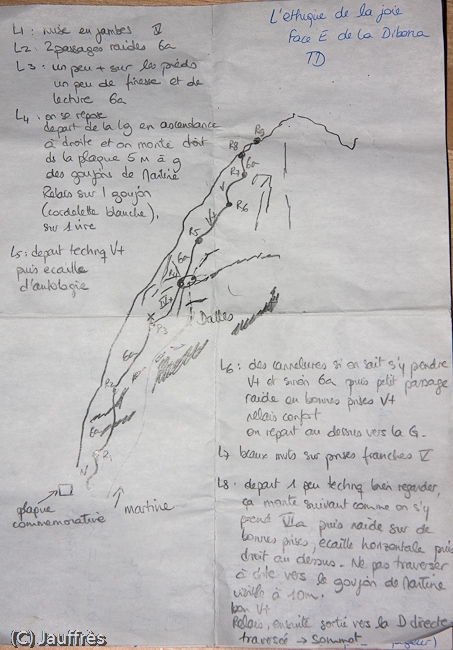 L'ethique de la joie
Face E de La Dibona
TD
L1 : mise en jambes V
L2 : 2 passages raides 6a
L3 : un peu + sur les pieds
un peu de finesse et de
lecture 6a
L4 : on se repose
depart de la lg en ascendance
à droite et on monte droit
ds la plaque 5 M à g
des goujons de Martine
Relais sur 1 goujon
(cordelette blanche),
sur 1 vire
L5 : depart techniq V+
puis ecaille
d'antologie
R9
R8
6a
R7
V
R6
V+
R5
6a
R4
IV+
R3
Dalles
6a
R2
6a
R1
V
plaque
commemorative
martine
L6 : des cannelures si on sait s'y prendre
V+ et sinon 6a puis petit passage
raide en bonnes prises V+
relais confort
on repart au dessus vers la G.
L7 beaux mvts sur prises franches V
L8 : depart 1 peu techniq bien regarder,
ça monte suivant comme on s'y
prend VIa puis raide sur de
bonnes prises, ecaille horizontale puis
droit au dessus. Ne pas traverser
à dte vers le goujon de Martine
visible à 10m.
bon V+
Relais, ensuite sortie vers la D directe
traversée → Sommet
(C) Jauffrès